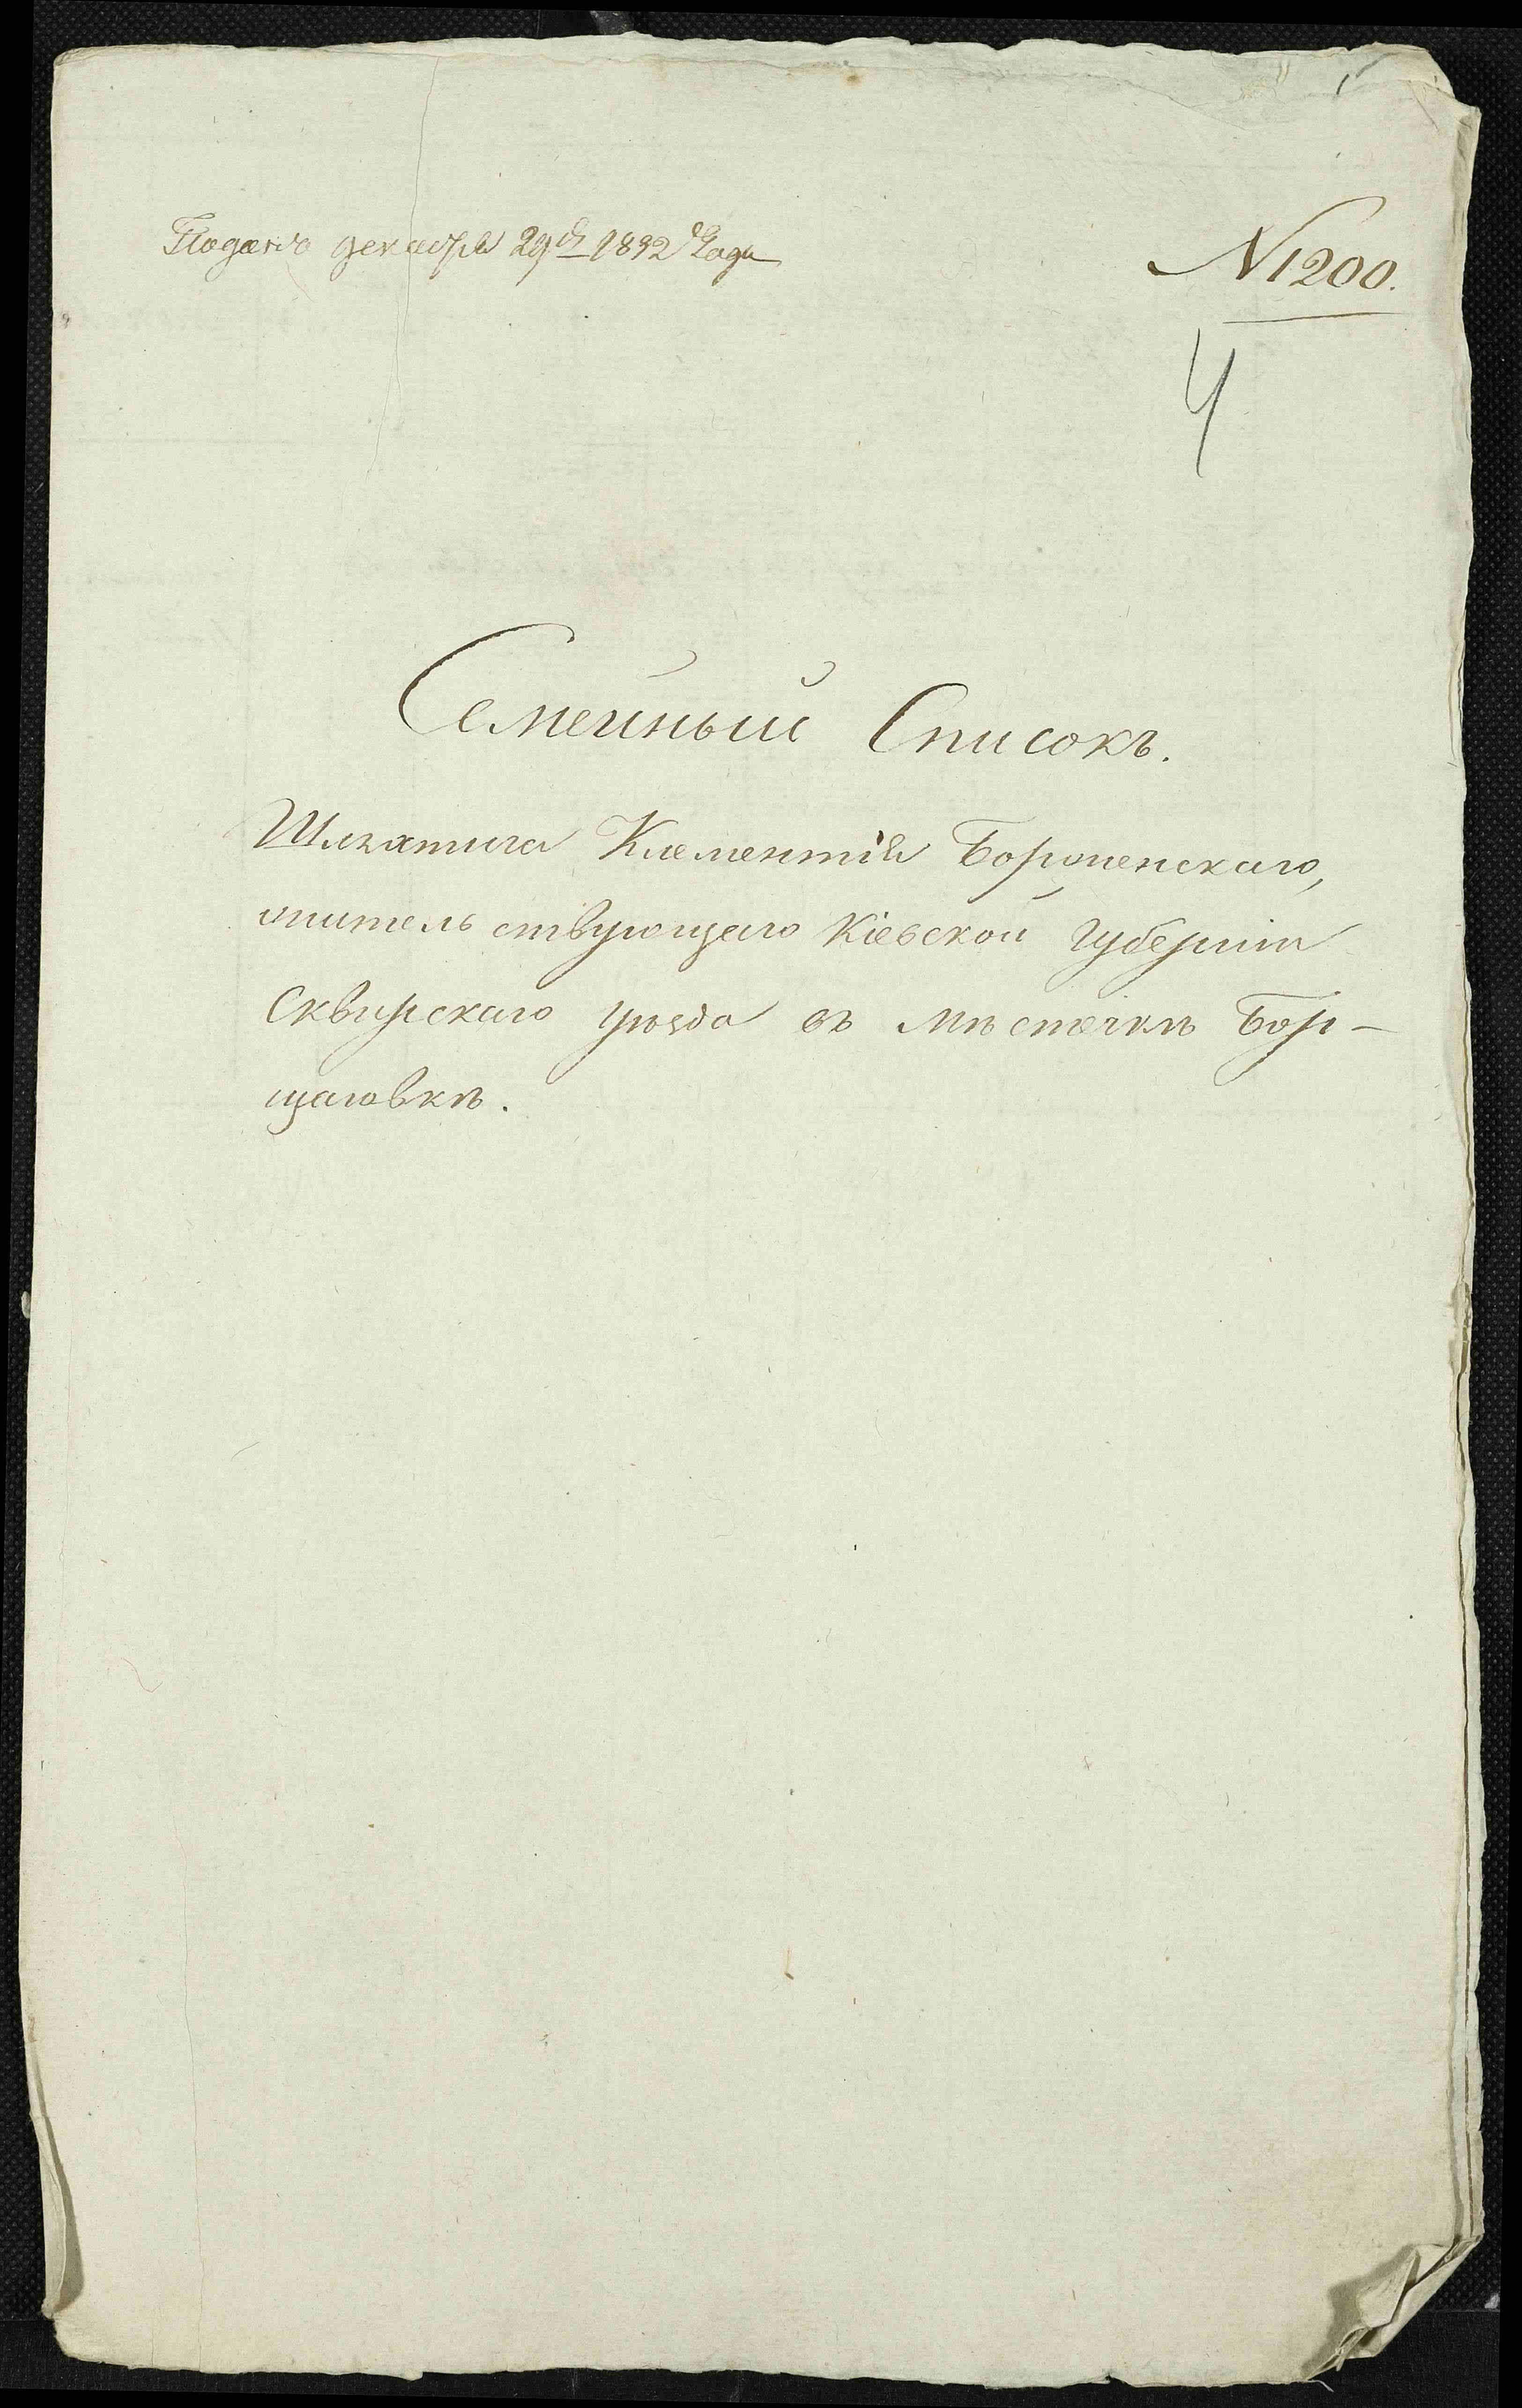 Подано декабря 29 дн 1832 Года
N 1200.
4
Семейный Списокъ.
Шляхтича Клементія
жительствующаго Кіевской Губерніи
Сквирскаго уѣзда въ мѣстечкѣ Бор-
щаговкѣ.